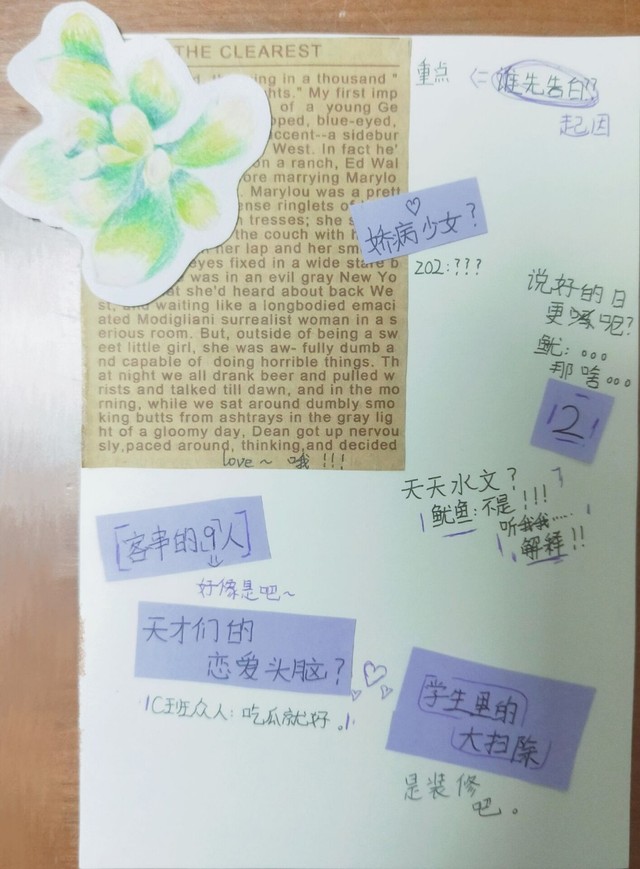 THE CLEAREST
d, the   ing in a thousand "
hts." My first imp
of a young Ge
pped, blue-eyed,
accent--a sidebur
West. In fact he'
on a ranch, Ed Wal
ore marrying Marylo
. Marylou was a prett
ense ringlets of
n tresses; she s
the couch with h
her lap and her sm
eyes fixed in a wide stare b
was in an evil gray New Yo
at she'd heard about back We
st, and waiting like a longbodied emaci
ated Modigliani surrealist woman in a s
erious room. But, outside of being a sw
eet little girl, she was aw- fully dumb a
nd capable of doing horrible things. Th
at night we all drank beer and pulled w
rists and talked till dawn, and in the mo
rning, while we sat around dumbly smo
king butts from ashtrays in the gray lig
ht of a gloomy day, Dean got up nervou
sly,paced around, thinking,and decided
love~ 哦!!!
重点 <= 谁先告白??
起因
♡
娇病少女?
202:???
说好的日
更呢?
鱿:...
那啥...
2
天天水文?
鱿鱼:不是!!!
听我我.....
解释!!
[客串的9人]
好像是吧~
天才们的
恋爱头脑?
C班众人:吃瓜就好。
学生里的
大扫除
是装修
吧。